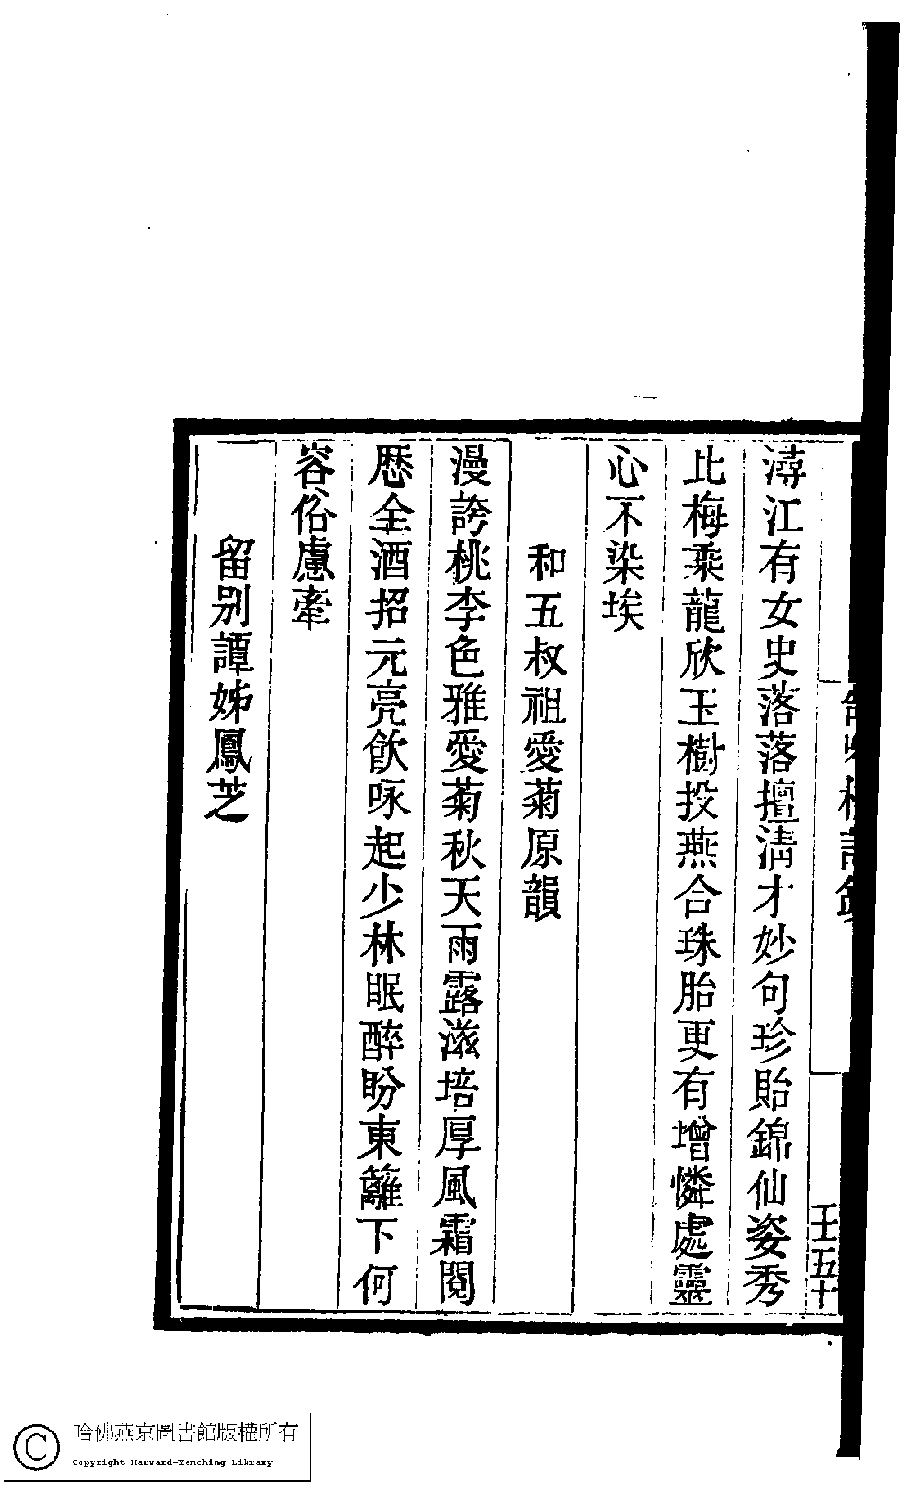 潯江有女史落落擅清才妙句珍貽錦仙姿秀
比梅乘龍欣玉樹投燕合珠胎更有增憐處靈
心不染埃
和五叔祖愛菊原韻
漫誇桃李色雅愛菊秋天雨露滋培厚風霜閱
歷全酒招元亮飲咏起少林眠醉盼東籬下何
容俗慮牽
留別譚姊鳳芝
哈佛燕京圖書館版權所有
Copyright Harvard-Yenching Library